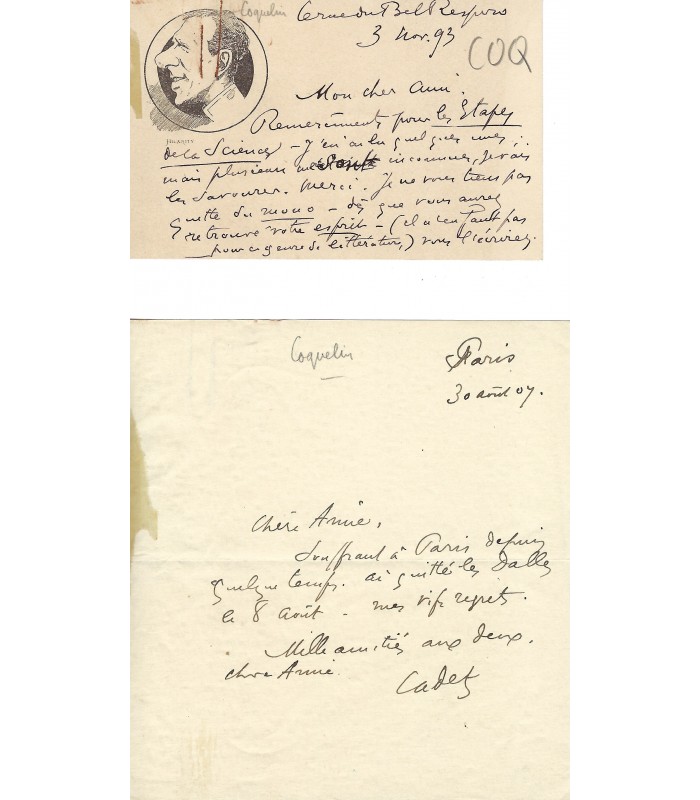 Coquelin
3 Nov. 93
COQ
Mon cher ami.
Remerciments pour les Etapes
de la Science - J'en ai lu quelques unes ;
mais plusieurs me sont inconnues, je vais
les savourer. Merci. Je ne vous tiens pas
quitte du mono - dès que vous aurez
retrouvé votre esprit - (il n'en faut pas
pour ce genre de littérature,) vous l'écrirez.
Coquelin
Paris
30 août 07.
Chère Amie,
Souffrant à Paris depuis
quelque temps. ai quitté les Dalles
le 8 Août - mes vifs regrets.
Mille amitiés aux deux.
chère Amie.
Cadet